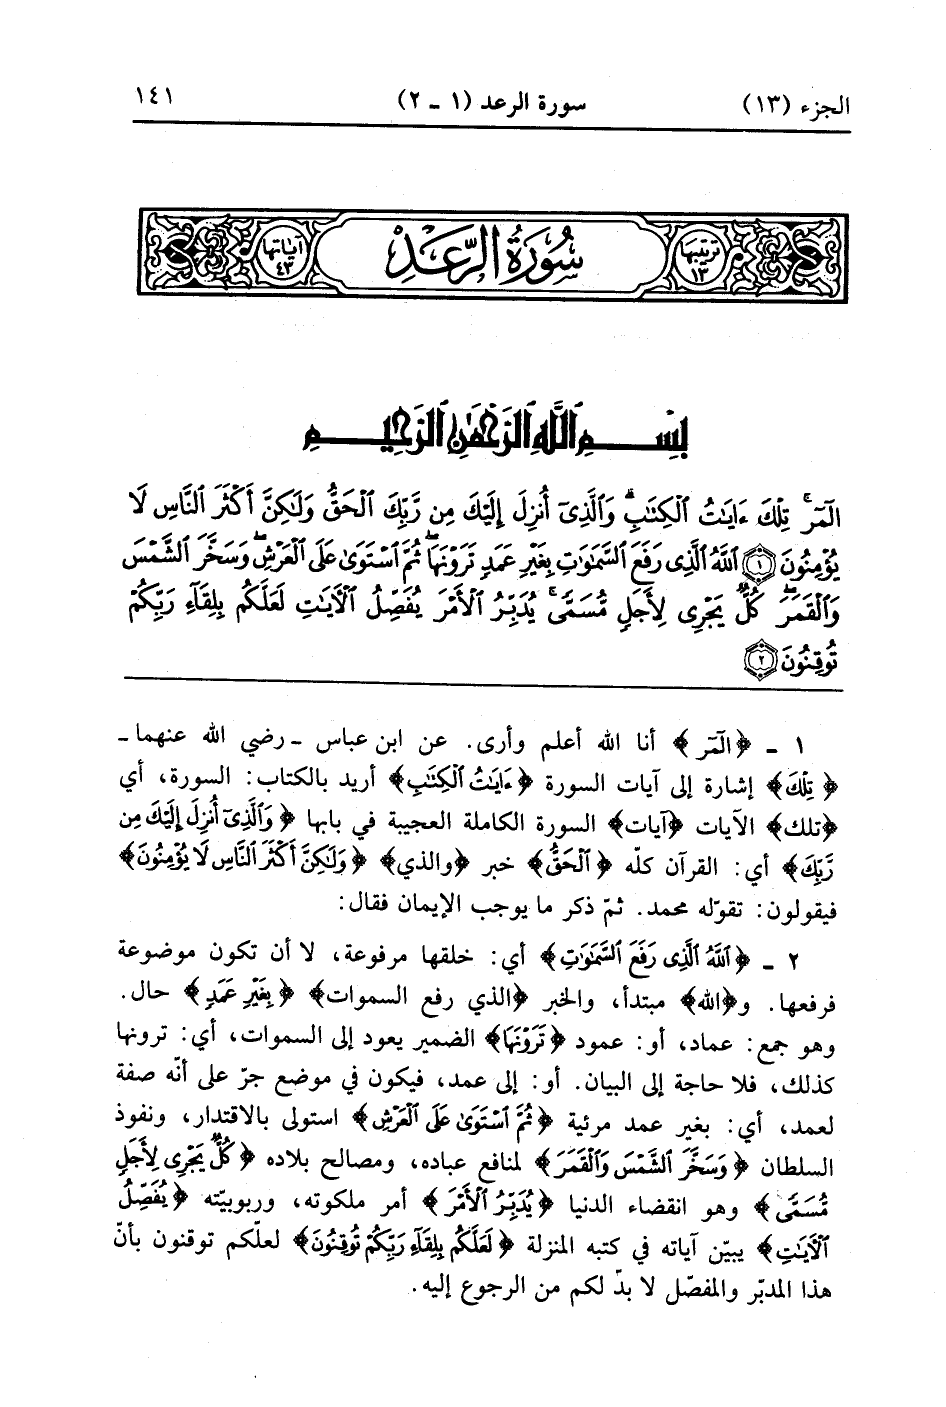 الجزء (١٣)
سورة الرعد (١ - ٢)
١٤١
ترتيبها ١٣
سُورَةُ الرَّعْدِ
آياتها ٤٣
بِسْمِ اللَّهِ الرَّحْمَٰنِ الرَّحِيمِ
الٓمٓرۚ تِلْكَ ءَايَٰتُ ٱلْكِتَٰبِۗ وَٱلَّذِىٓ أُنزِلَ إِلَيْكَ مِن رَّبِّكَ ٱلْحَقُّ وَلَٰكِنَّ أَكْثَرَ ٱلنَّاسِ لَا
يُؤْمِنُونَ ١ ٱللَّهُ ٱلَّذِى رَفَعَ ٱلسَّمَٰوَٰتِ بِغَيْرِ عَمَدٍ تَرَوْنَهَاۖ ثُمَّ ٱسْتَوَىٰ عَلَى ٱلْعَرْشِۖ وَسَخَّرَ ٱلشَّمْسَ
وَٱلْقَمَرَۖ كُلٌّ يَجْرِى لِأَجَلٍ مُّسَمًّىۚ يُدَبِّرُ ٱلْأَمْرَ يُفَصِّلُ ٱلْأٓيَٰتِ لَعَلَّكُم بِلِقَآءِ رَبِّكُمْ
تُوقِنُونَ ٢
١ - ﴿الٓمٓر﴾ أنا الله أعلم وأرى. عن ابن عباس - رضي الله عنهما -
﴿تِلْكَ﴾ إشارة إلى آيات السورة ﴿ءَايَٰتُ ٱلْكِتَٰبِ﴾ أريد بالكتاب: السورة، أي
﴿تلك﴾ الآيات ﴿آيات﴾ السورة الكاملة العجيبة في بابها ﴿وَٱلَّذِىٓ أُنزِلَ إِلَيْكَ مِن
رَّبِّكَ﴾ أي: القرآن كلّه ﴿ٱلْحَقُّ﴾ خبر ﴿والذي﴾ ﴿وَلَٰكِنَّ أَكْثَرَ ٱلنَّاسِ لَا يُؤْمِنُونَ﴾
فيقولون: تقوّله محمد. ثمّ ذكر ما يوجب الإيمان فقال:
٢ - ﴿ٱللَّهُ ٱلَّذِى رَفَعَ ٱلسَّمَٰوَٰتِ﴾ أي: خلقها مرفوعة، لا أن تكون موضوعة
فرفعها. و﴿الله﴾ مبتدأ، والخبر ﴿الذي رفع السموات﴾ ﴿بِغَيْرِ عَمَدٍ﴾ حال.
وهو جمع: عماد، أو: عمود ﴿تَرَوْنَهَا﴾ الضمير يعود إلى السموات، أي: ترونها
كذلك، فلا حاجة إلى البيان. أو: إلى عمد، فيكون في موضع جرّ على أنّه صفة
لعمد، أي: بغير عمد مرئية ﴿ثُمَّ ٱسْتَوَىٰ عَلَى ٱلْعَرْشِ﴾ استولى بالاقتدار، ونفوذ
السلطان ﴿وَسَخَّرَ ٱلشَّمْسَ وَٱلْقَمَرَ﴾ لمنافع عباده، ومصالح بلاده ﴿كُلٌّ يَجْرِى لِأَجَلٍ
مُّسَمًّى﴾ وهو انقضاء الدنيا ﴿يُدَبِّرُ ٱلْأَمْرَ﴾ أمر ملكوته، وربوبيّته ﴿يُفَصِّلُ
ٱلْأٓيَٰتِ﴾ يبيّن آياته في كتبه المنزلة ﴿لَعَلَّكُم بِلِقَآءِ رَبِّكُمْ تُوقِنُونَ﴾ لعلّكم توقنون بأنّ
هذا المدبّر والمفصّل لا بدّ لكم من الرجوع إليه.